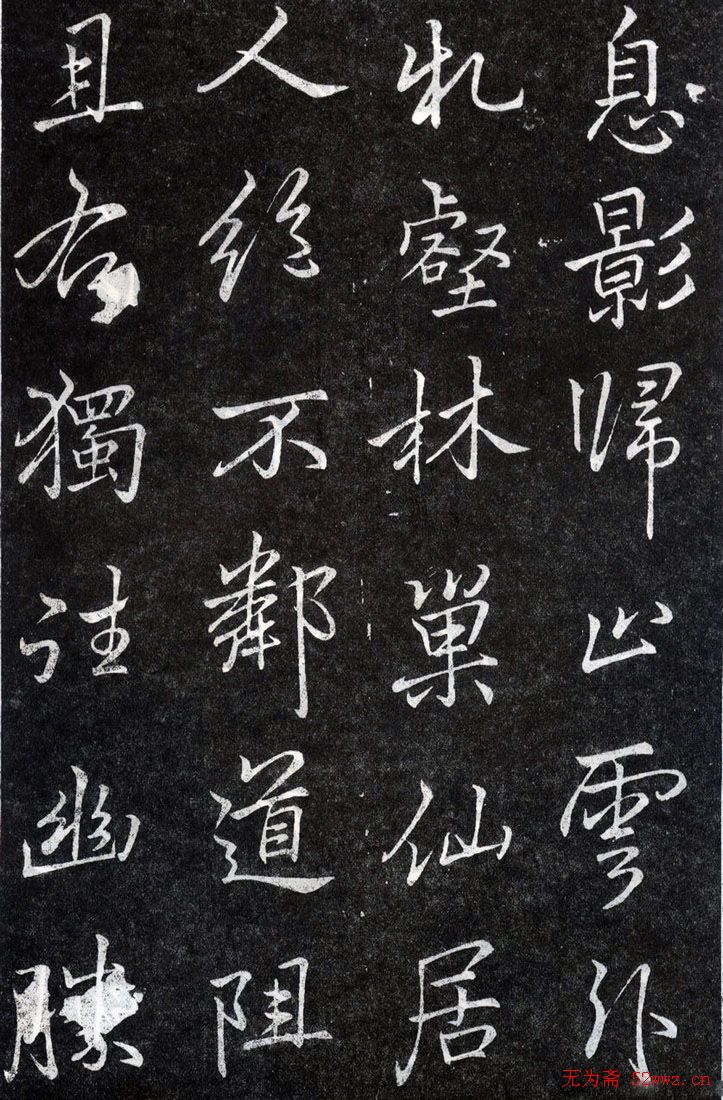 息影歸止雲
牝壑林巢仙居
人絕不鄰道阻
且獨往幽勝
无为斋 52wwz.cn